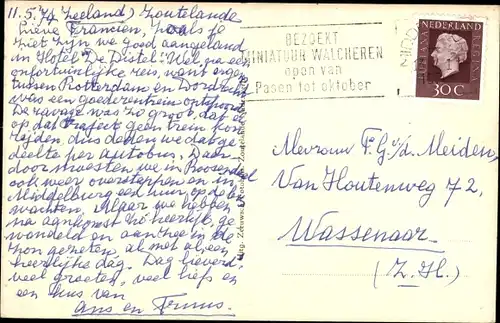 11.5.74 Zeeland) Zoutelande
Lieve Francien, zoals je
ziet zijn we goed aangeland
in Hotel De Distel! Wel na een
onfortuinlijke reis, want ergens
tussen Rotterdam en Dordrecht
was een goederentrein ontspoord.
De ravage was zo groot, dat er
op dat traject geen trein kon
rijden, dus deden we dat ge-
deelte per autobus. Daar-
door moesten we in Roosendaal
ook weer overstappen en in
Middelburg een uur op de bus
wachten. Maar we hebben
na aankomst zo heerlijk ge-
wandeld en aan thee in de
zon gezeten, al met al een
heerlijke dag. Dag lieverd,
veel groeten, veel liefs en
een kus van
Ans en Truus.
BEZOEKT
MINIATUUR WALCHEREN
open van
Pasen tot oktober
NEDERLAND
JULIANA REGINA
30 C
Mevrouw F.G. v/d. Meiden
Van Houtenweg 72,
Wassenaar
(Z.Hl.)